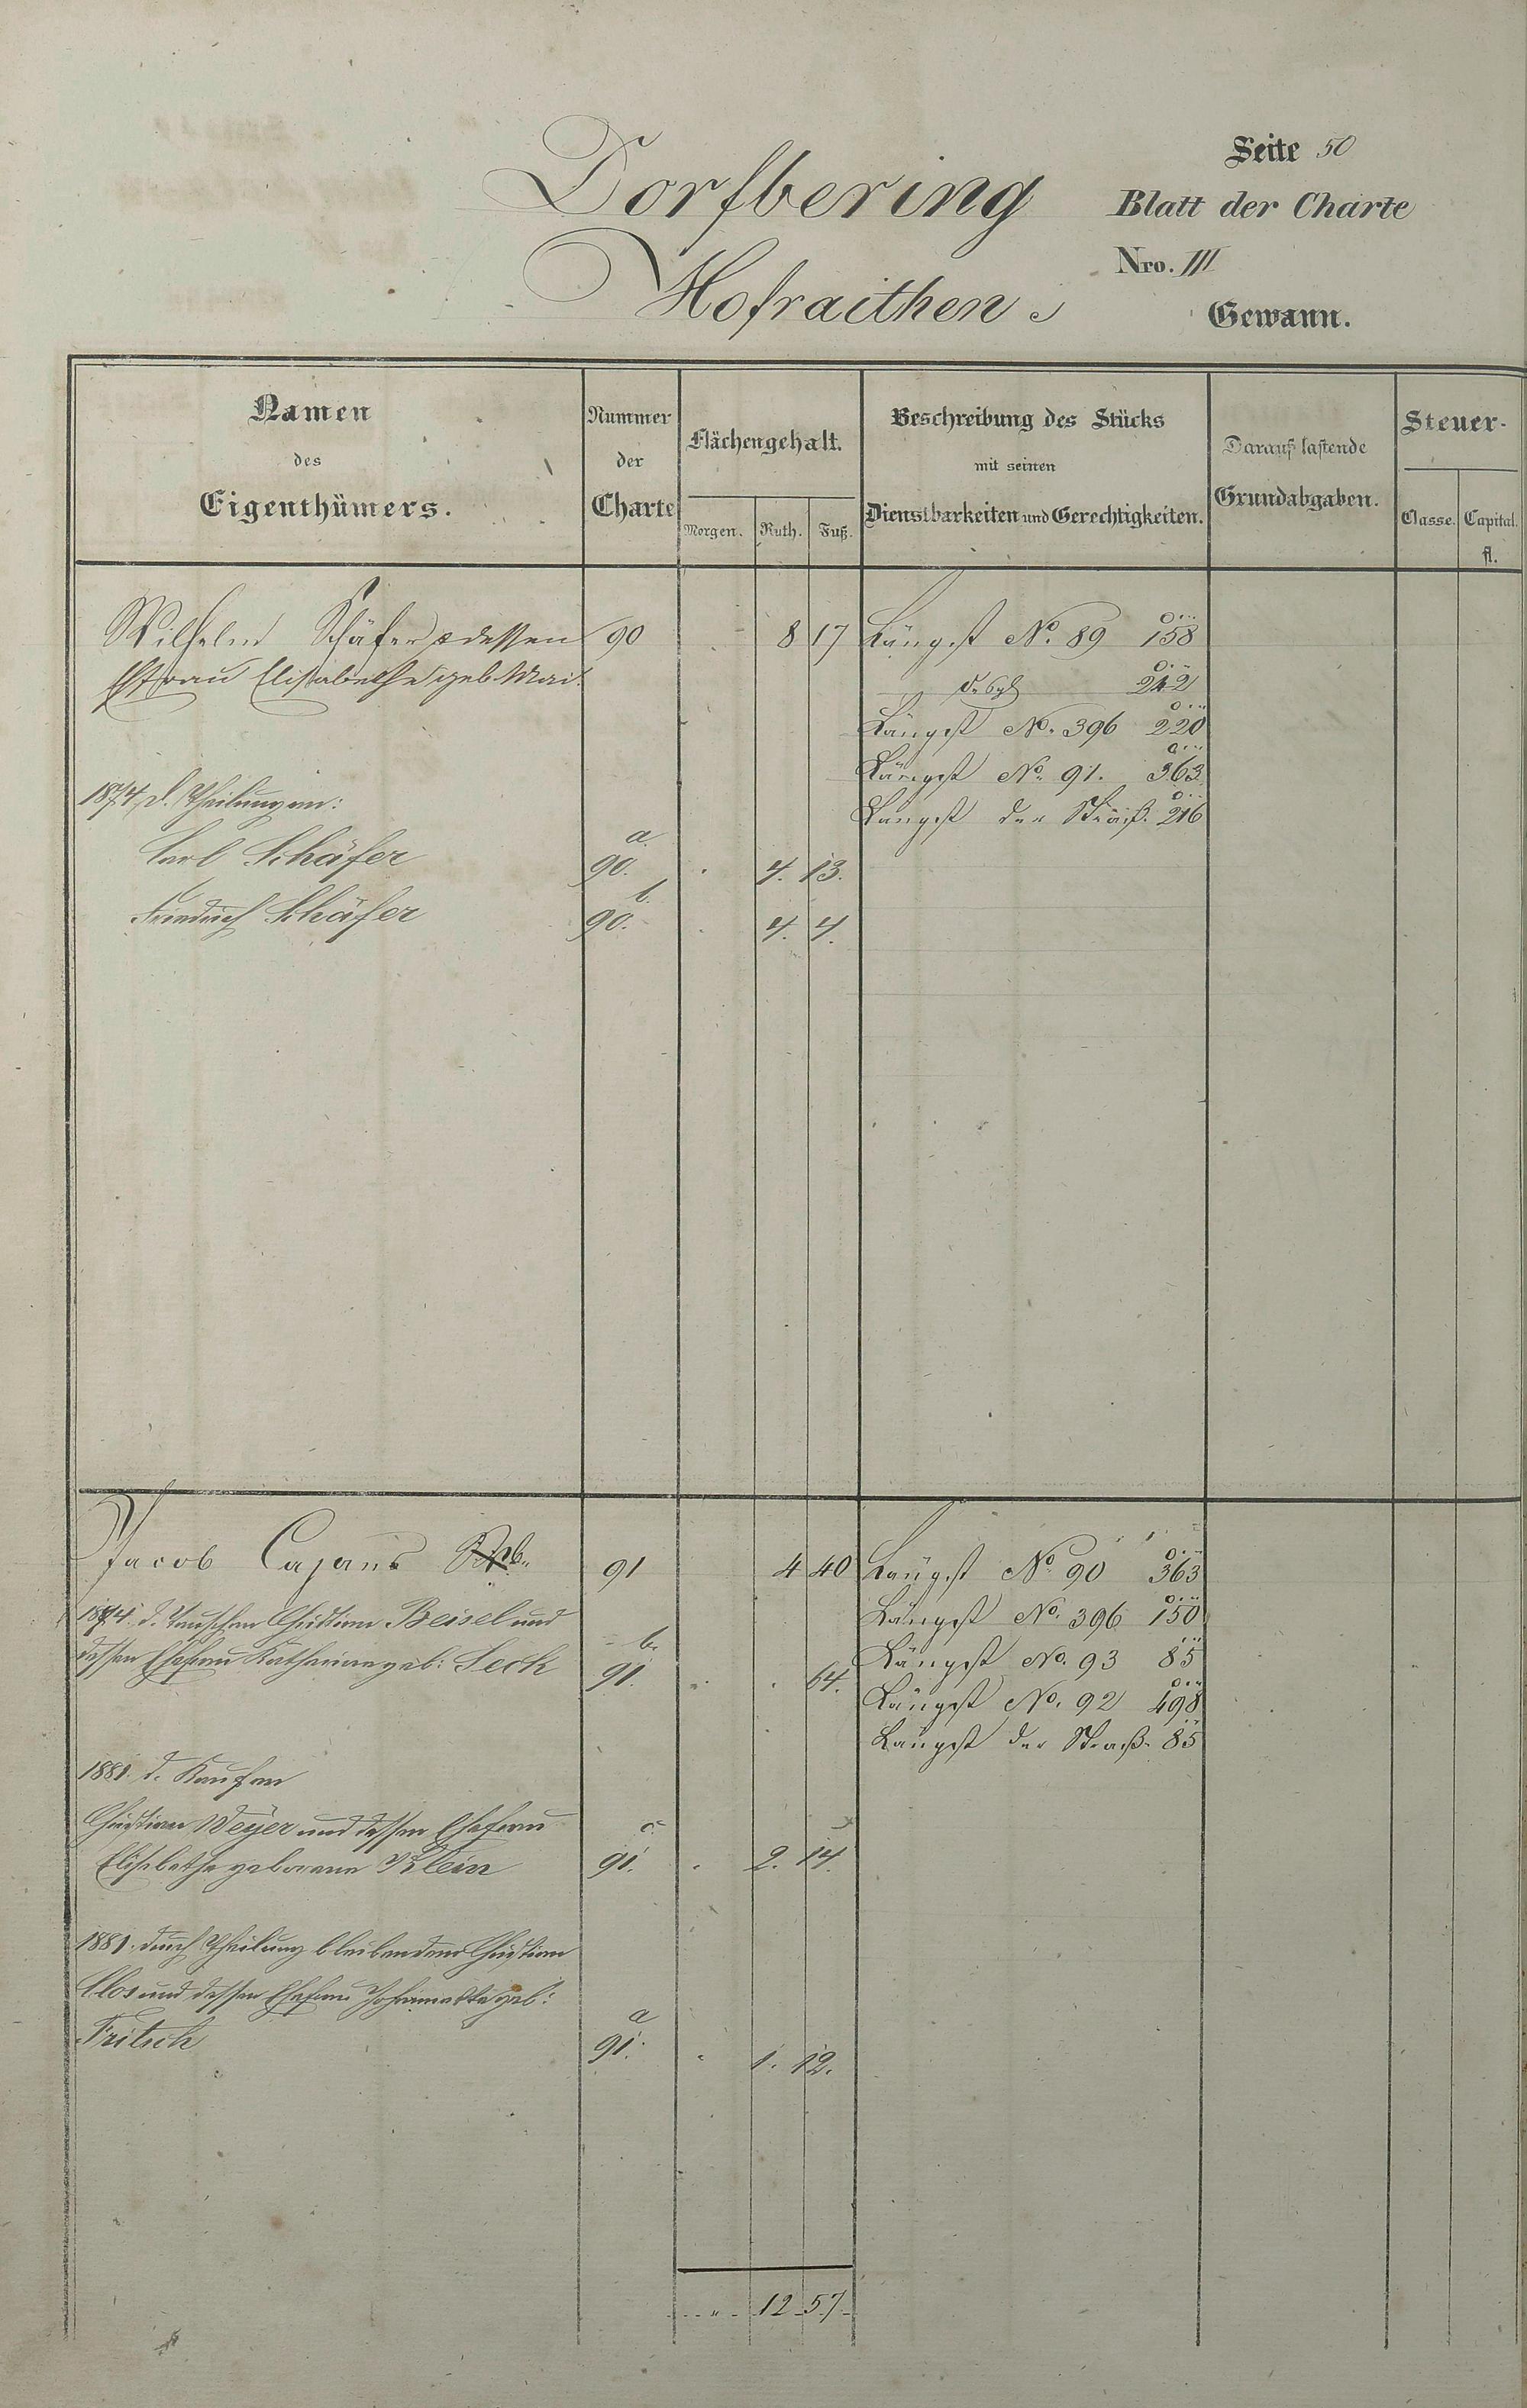 Dorfbering
Hofraithen
Seite 50
Blatt der Charte
Nro. III
Gewann.
Namen
des
Eigenthümers.
Nummer
der
Charte
Flächengehalt.
Morgen. Ruth. Fuß.
Beschreibung des Stücks
mit seinen
Dienstbarkeiten und Gerechtigkeiten.
Darauf lastende
Grundabgaben.
Steuer-
Classe. Capital.
fl.
Wilhelm Schäfer & dessen 90 8 17 Längst No. 89 158
Ehfrau Elisabethe geb. Mai.
desgl 242
Längst No. 396 220
Längst No. 91. 363
1874 d. Theilung an:
Längst der Straß. 216
Carl Schäfer a. 90. 4. 13.
Friedrich Schäfer b. 90. 4. 4.
Jacob Cajans 91 4 40 Längst No. 90 363
1874. d. Tauschen Christian Beisel und
Längst No. 396 150
dessen Ehefrau Katharine geb: Seck b. 91. 64.
Längst No. 93 85
Längst No. 92 498
Längst der Straß. 85
1881. d. Kauf an
Christian Weyer und dessen Ehefrau
Elisabethe geborene Klein c. 91. 2. 14.
1881. durch Theilung bleibend an Christian
Clos und dessen Ehefrau Johannette geb:
Fritsch a 91. 1. 12.
12 57